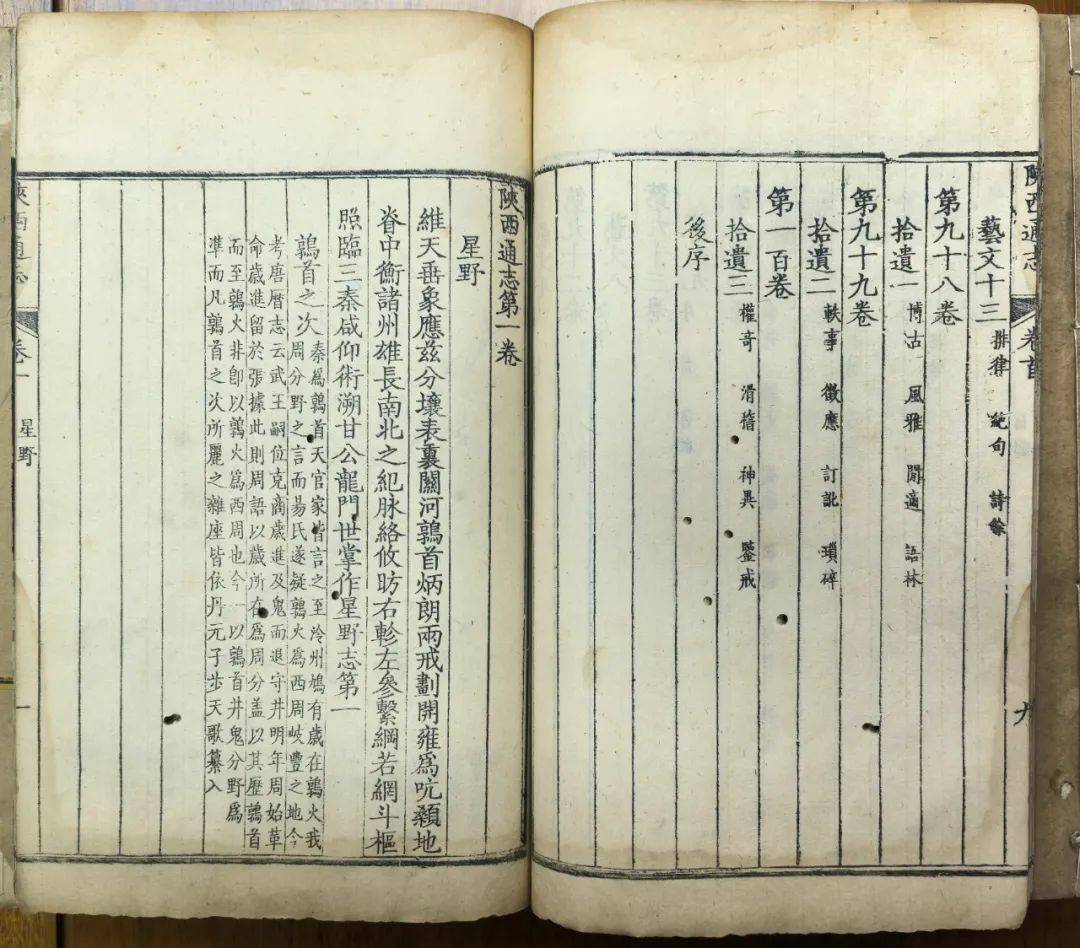 陝西通志 卷首 九
藝文十三 排律 絶句 詩餘
第九十八卷
拾遺一 博古 風雅 閒適 語林
第九十九卷
拾遺二 軼事 徵應 訂訛 瑣碎
第一百卷
拾遺三 權奇 滑稽 神異 鑒戒
後序
陝西通志第一卷
星野
維天垂象應兹分壤表裏關河鶉首炳朗兩戒劃開雍爲吭顙地
脊中衡諸州雄長南北之紀脉絡攸昉右軫左參繫綱若網斗樞
照臨三秦咸仰術溯甘公龍門世掌作星野志第一
鶉首之次 秦爲鶉首天官家皆言之至泠州鳩有歲在鶉火我
周分野之言而易氏遂疑鶉火爲西周岐豐之地今
考唐曆志云武王嗣位克商歲進及鬼而退守井明年周始革
命歲進留於張據此則周語以歲所在爲周分盖以其歴鶉首
而至鶉火非卽以鶉火爲西周也今一以鶉首井鬼分野爲
準而凡鶉首之次所麗之雜座皆依丹元子步天歌纂入
陝西通志 卷一 星野 一